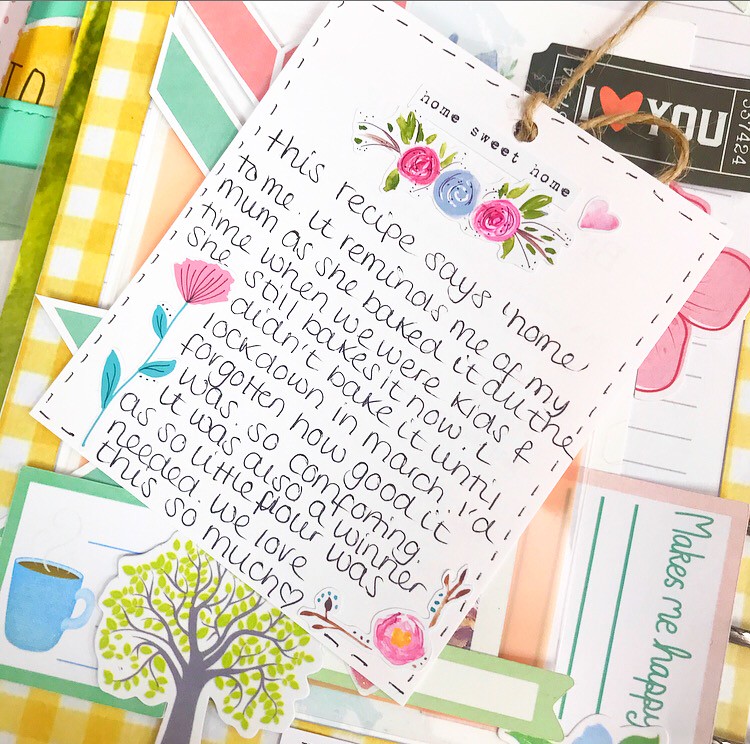 home sweet home
this recipe says 'home'
to me. it reminds me of my
mum as she baked it all the
time when we were kids &
she still bakes it now. i
didn't bake it until
lockdown in march. i'd
forgotten how good it
was so comforting.
it was also a winner
as so little flour was
needed. we love
this so much♡
I ♥ YOU
337424
Makes me happy